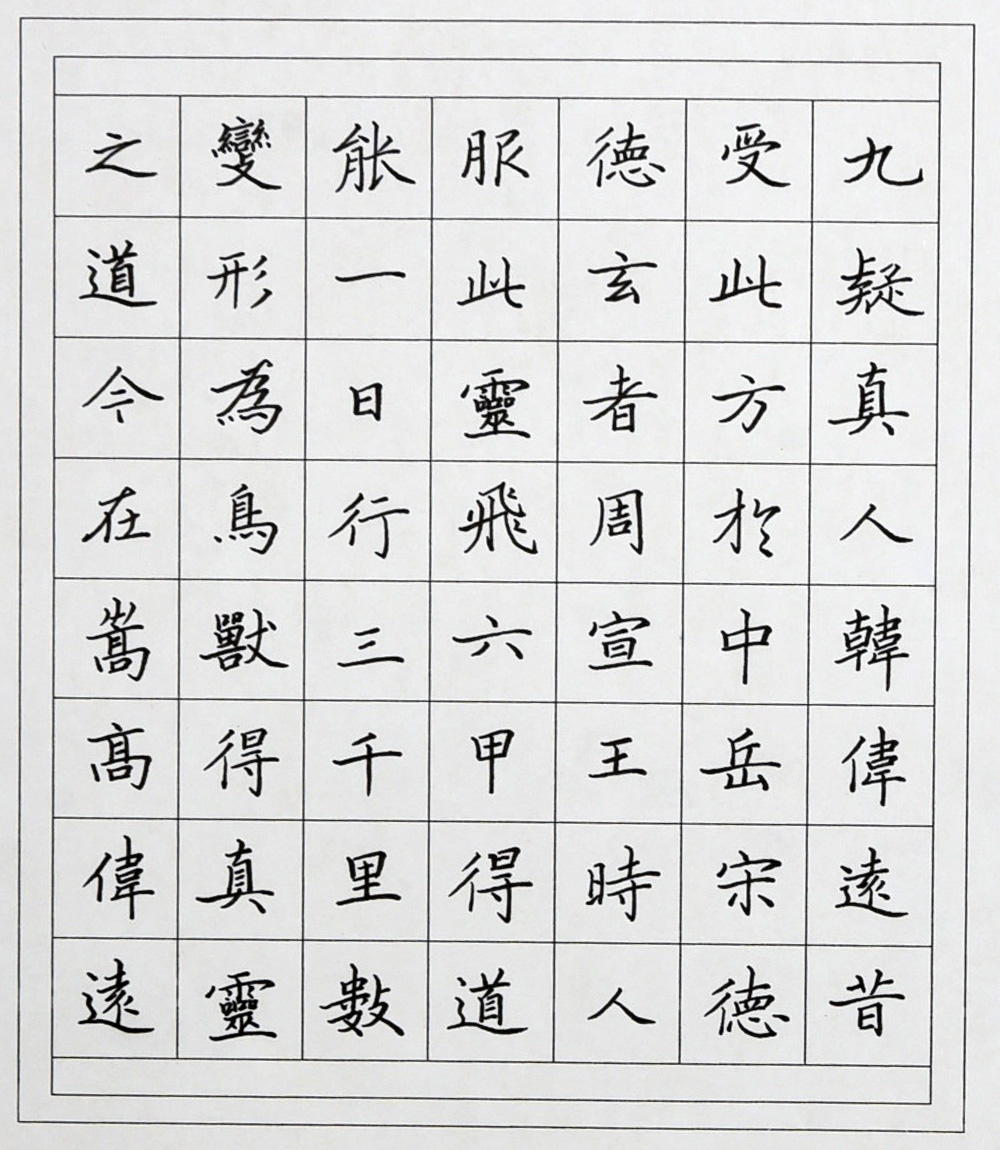 九疑真人韓偉遠昔
受此方於中岳宋德
德玄者周宣王時人
服此靈飛六甲得道
能一日行三千里數
變形為鳥獸得真靈
之道今在嵩高偉遠